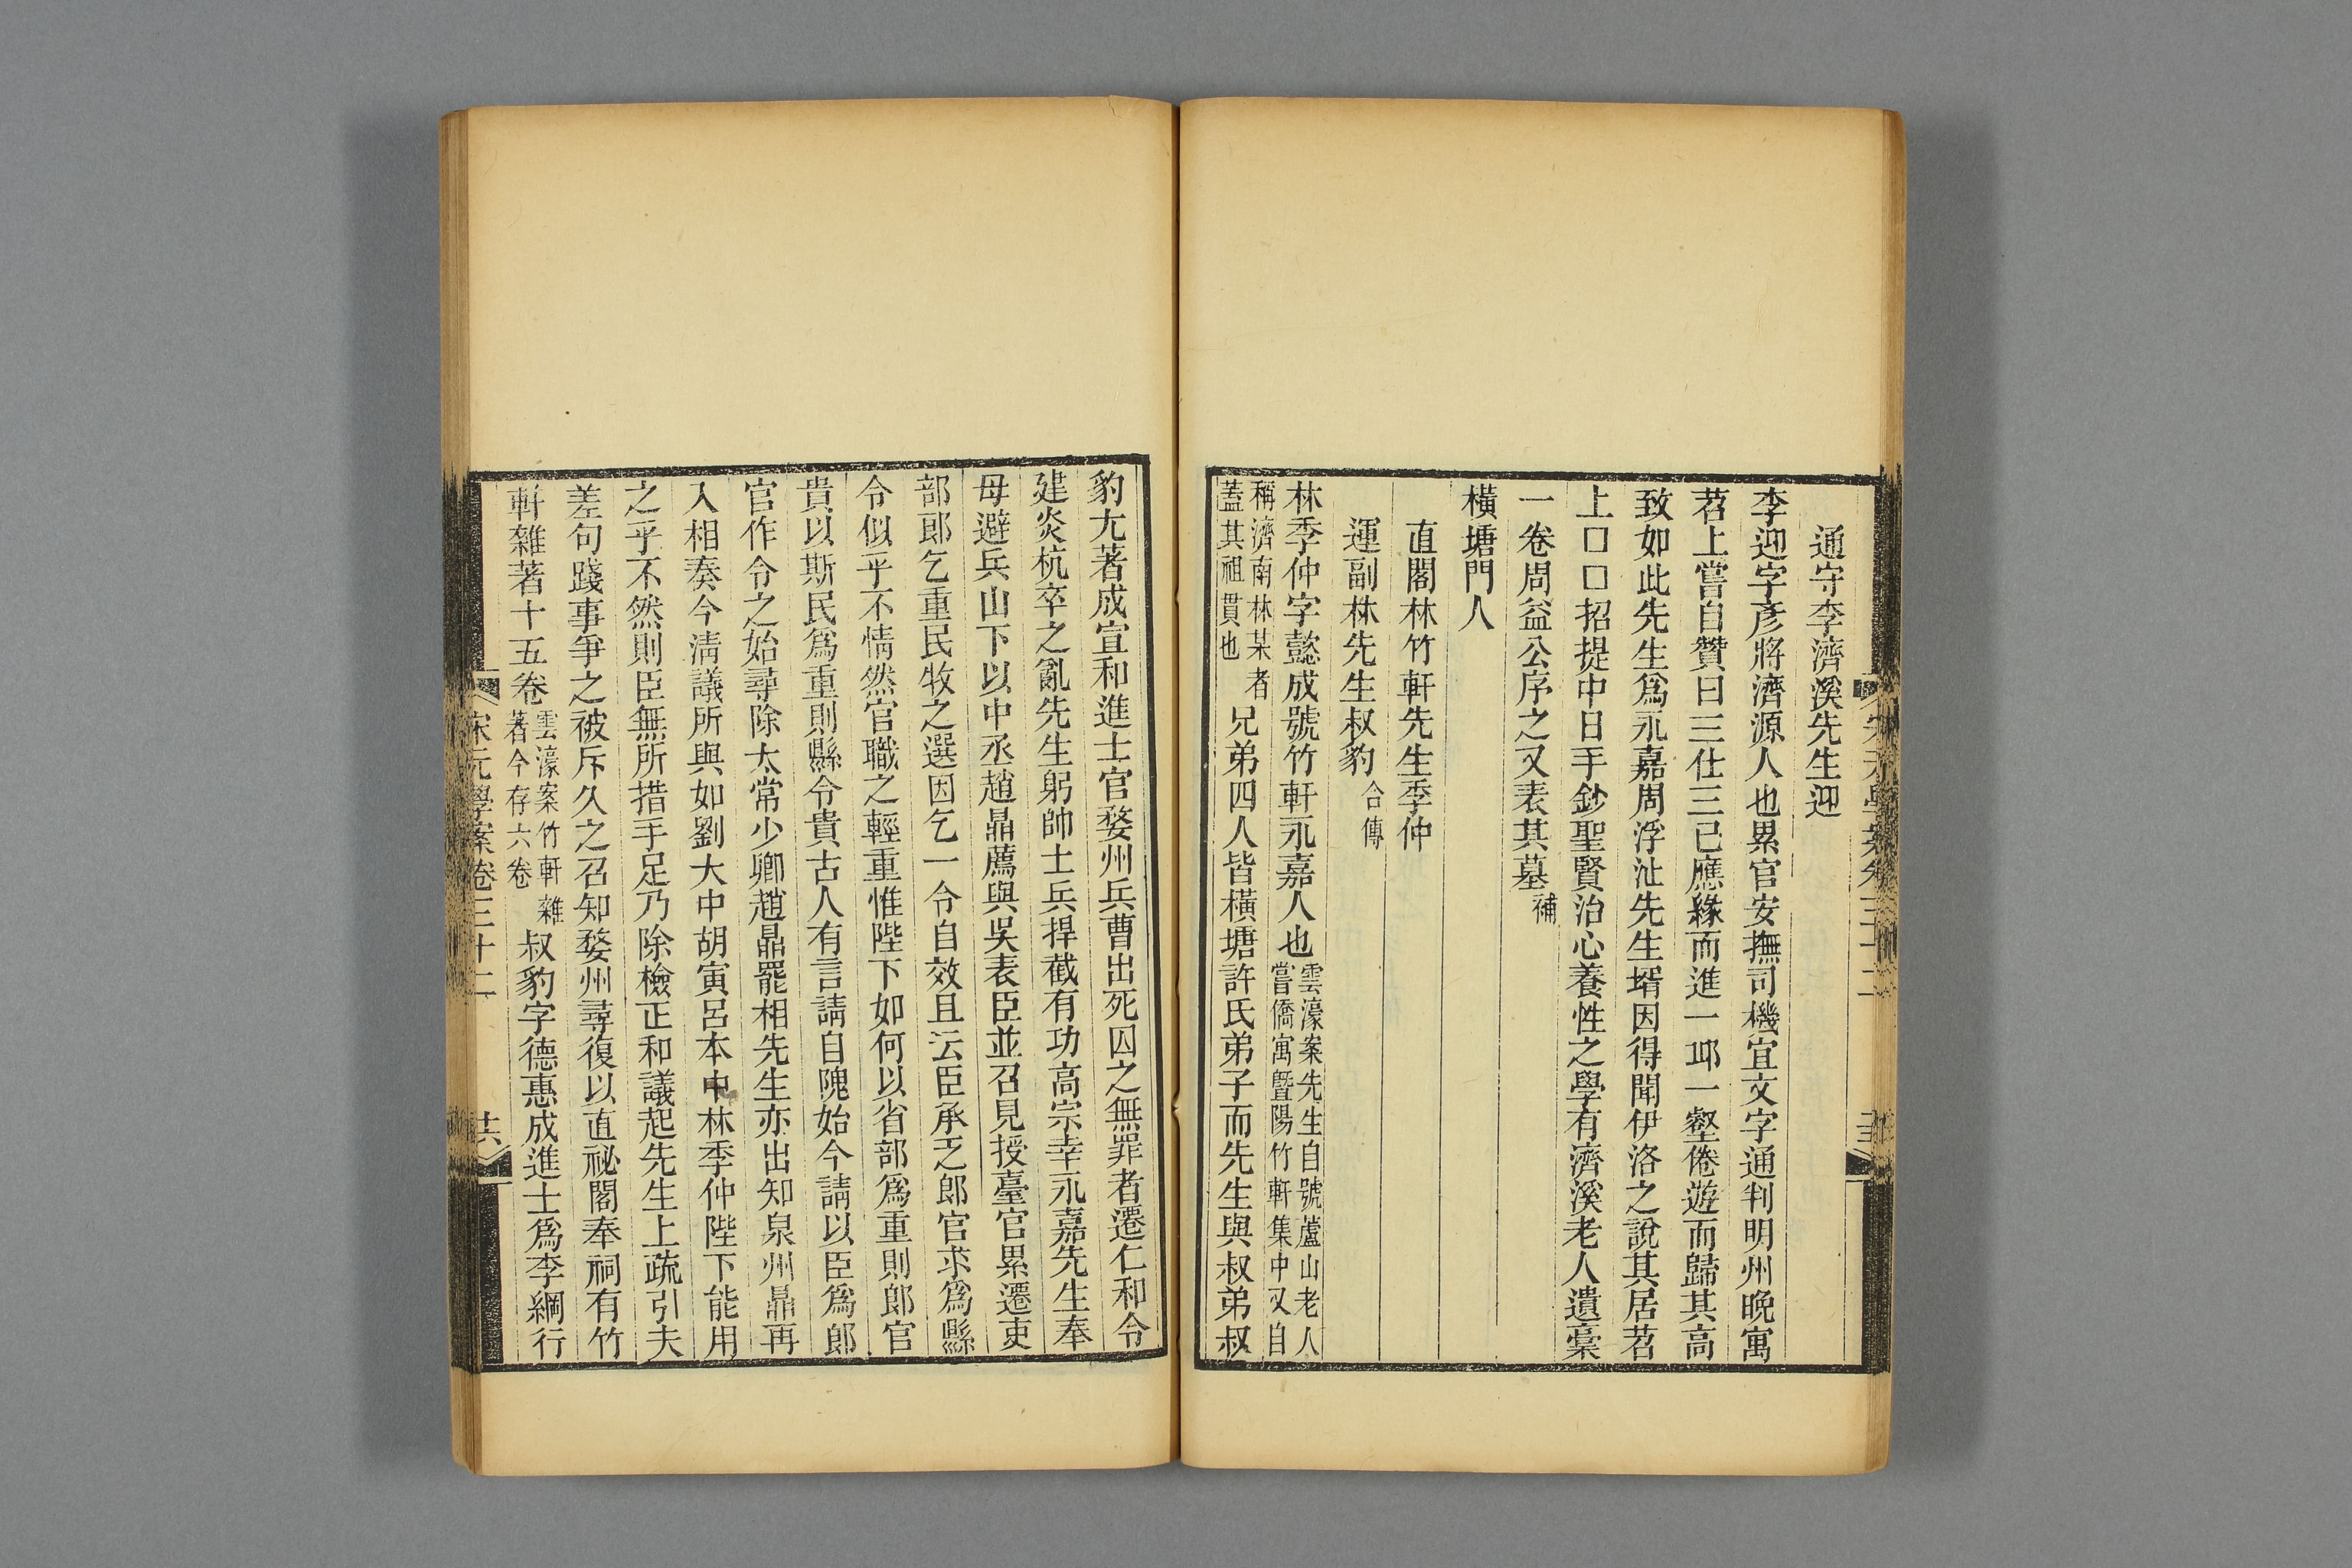 通守李濟溪先生迎
李迎字彥將濟源人也累官安撫司機宜文字通判明州晚寓
苕上嘗自贊曰三仕三已應緣而進一邱一壑倦遊而歸其高
致如此先生爲永嘉周浮沚先生壻因得聞伊洛之說其居苕
上□□招提中日手鈔聖賢治心養性之學有濟溪老人遺稾
一卷周益公序之又表其墓補
橫塘門人
直閣林竹軒先生季仲
運副林先生叔豹合傳
林季仲字懿成號竹軒永嘉人也雲濠案先生自號蘆山老人
嘗僑寓暨陽竹軒集中又自
稱濟南林某者
蓋其祖貫也
兄弟四人皆橫塘許氏弟子而先生與叔弟叔
豹尤著成宣和進士官婺州兵曹出死囚之無罪者遷仁和令
建炎杭卒之亂先生躬帥士兵捍截有功高宗幸永嘉先生奉
母避兵山下以中丞趙鼎薦與吳表臣並召見授臺官累遷吏
部郎乞重民牧之選因乞一令自效且云臣承乏郎官求爲縣
令似乎不情然官職之輕重惟陛下如何以省部爲重則郎官
貴以斯民爲重則縣令貴古人有言請自隗始今請以臣爲郎
官作令之始尋除太常少卿趙鼎罷相先生亦出知泉州鼎再
入相奏今淸議所與如劉大中胡寅呂本中林季仲陛下能用
之乎不然則臣無所措手足乃除檢正和議起先生上疏引夫
差句踐事爭之被斥久之召知婺州尋復以直祕閣奉祠有竹
軒雜著十五卷雲濠案竹軒雜
著今存六卷
叔豹字德惠成進士爲李綱行
宋元學案卷三十二
十六